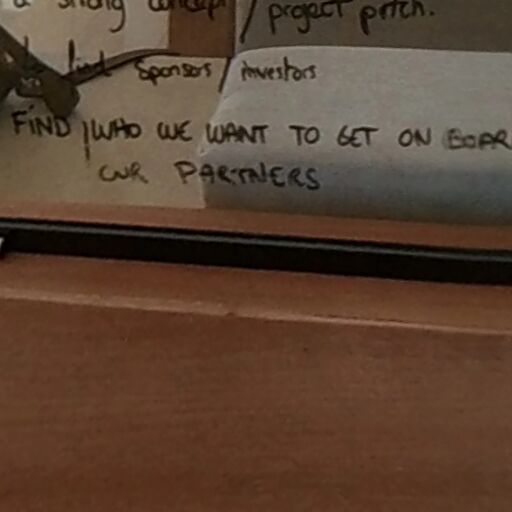 a strong concept / project pitch.
to find sponsors / investors
FIND / WHO WE WANT TO GET ON BOAR
OUR PARTNERS